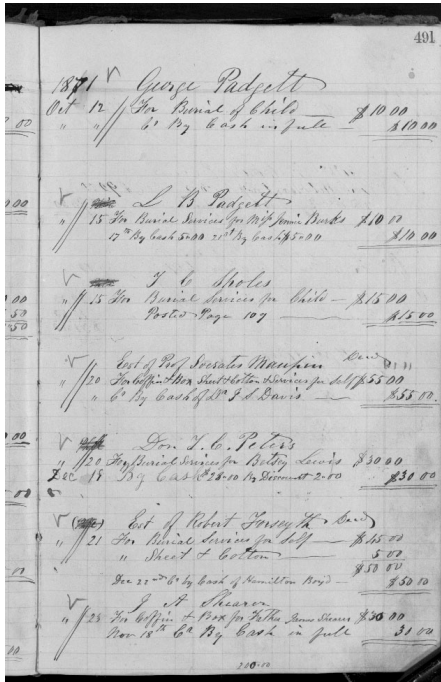 491
1871 George Padgett
Oct 12 For Burial of Child — $10.00
" " Cr By Cash in full — $10.00
L B Padgett
" 15 For Burial Services for Miss Jennie Burks $10.00
17th By Cash 5.00 21st By Cash $5.00 $10.00
T C Sholes
" 15 For Burial Services for Child — $15.00
Posted Page 107 — $15.00
Est of Prof Socrates Maupin Decd
" 20 For Coffin & Box Sheet & Cotton & Services for Self $55.00
" Cr By Cash of Dr J S Davis — $55.00
Don T. C. Peters
" 20 For Burial Services for Betsey Lewis $30.00
Dec 19 By Cash $28.00 By Discount 2.00 $30.00
Est of Robert Forsyth Decd
" 21 For Burial Services for Self — $45.00
" Sheet & Cotton — 5.00
$50.00
Dec 22nd Cr by Cash of Hamilton Boyd — $50.00
J A Shearer
" 28 For Coffin & Box for Father James Shearer $30.00
Nov 18th Cr By Cash in full 30.00
200.00